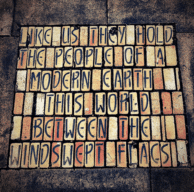 LIKE US THEY HOLD
THE PEOPLE OF A
MODERN EARTH
THIS WORLD
BETWEEN THE
WINDSWEPT FLAGS